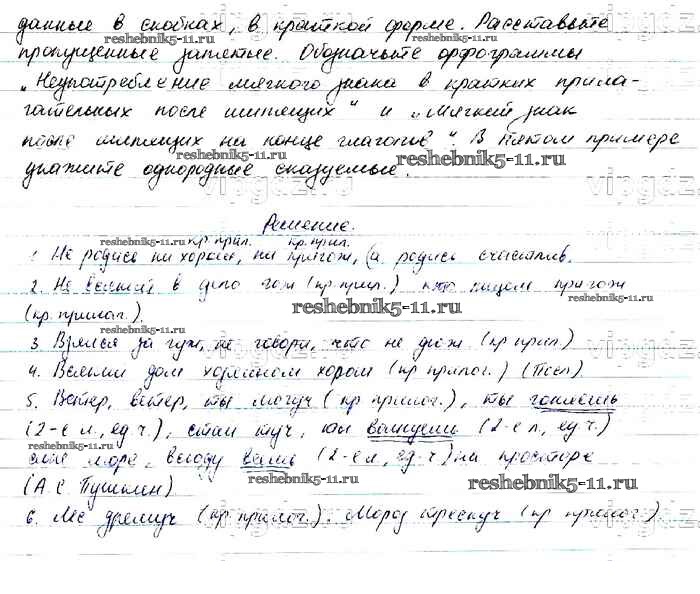 данные в скобках, в краткой форме. Расставьте
reshebnik5-11.ru
пропущенные запятые. Обозначьте орфограммы
„Неупотребление мягкого знака в кратких прила-
гательных после шипящих“ и „Мягкий знак
после шипящих на конце глаголов“. В пятом примере
reshebnik5-11.ru reshebnik5-11.ru
укажите однородные сказуемые.
vipgdz
Решение.
reshebnik5-11.ru
кр. прил. кр. прил.
1. Не родись ни хорош, ни пригож, (а родись счастлив.
2. Не всякий в дело гож (кр прил.) кто лицом пригож
reshebnik5-11.ru reshebnik5-11.ru
(кр. прилаг.).
reshebnik5-11.ru
3 Взялся за гуж, не говори, что не дюж (кр прил)
reshebnik5-11.ru
4. Всякий дом хозяином хорош (кр прилаг.) (Посл)
5. Ветер, ветер, ты могуч (кр прилаг.), ты гоняешь
(2-е л., ед ч.), стаи туч, ты волнуешь (2-е л, ед ч.)
reshebnik5-11.ru
сине море, всюду веешь (2-е л, ед. ч) на просторе
reshebnik5-11.ru
(А. С. Пушкин)
reshebnik5-11.ru
6. Лес дремуч (кр прилаг.). Мороз трескуч (кр прилаг.)
reshebnik5-11.ru